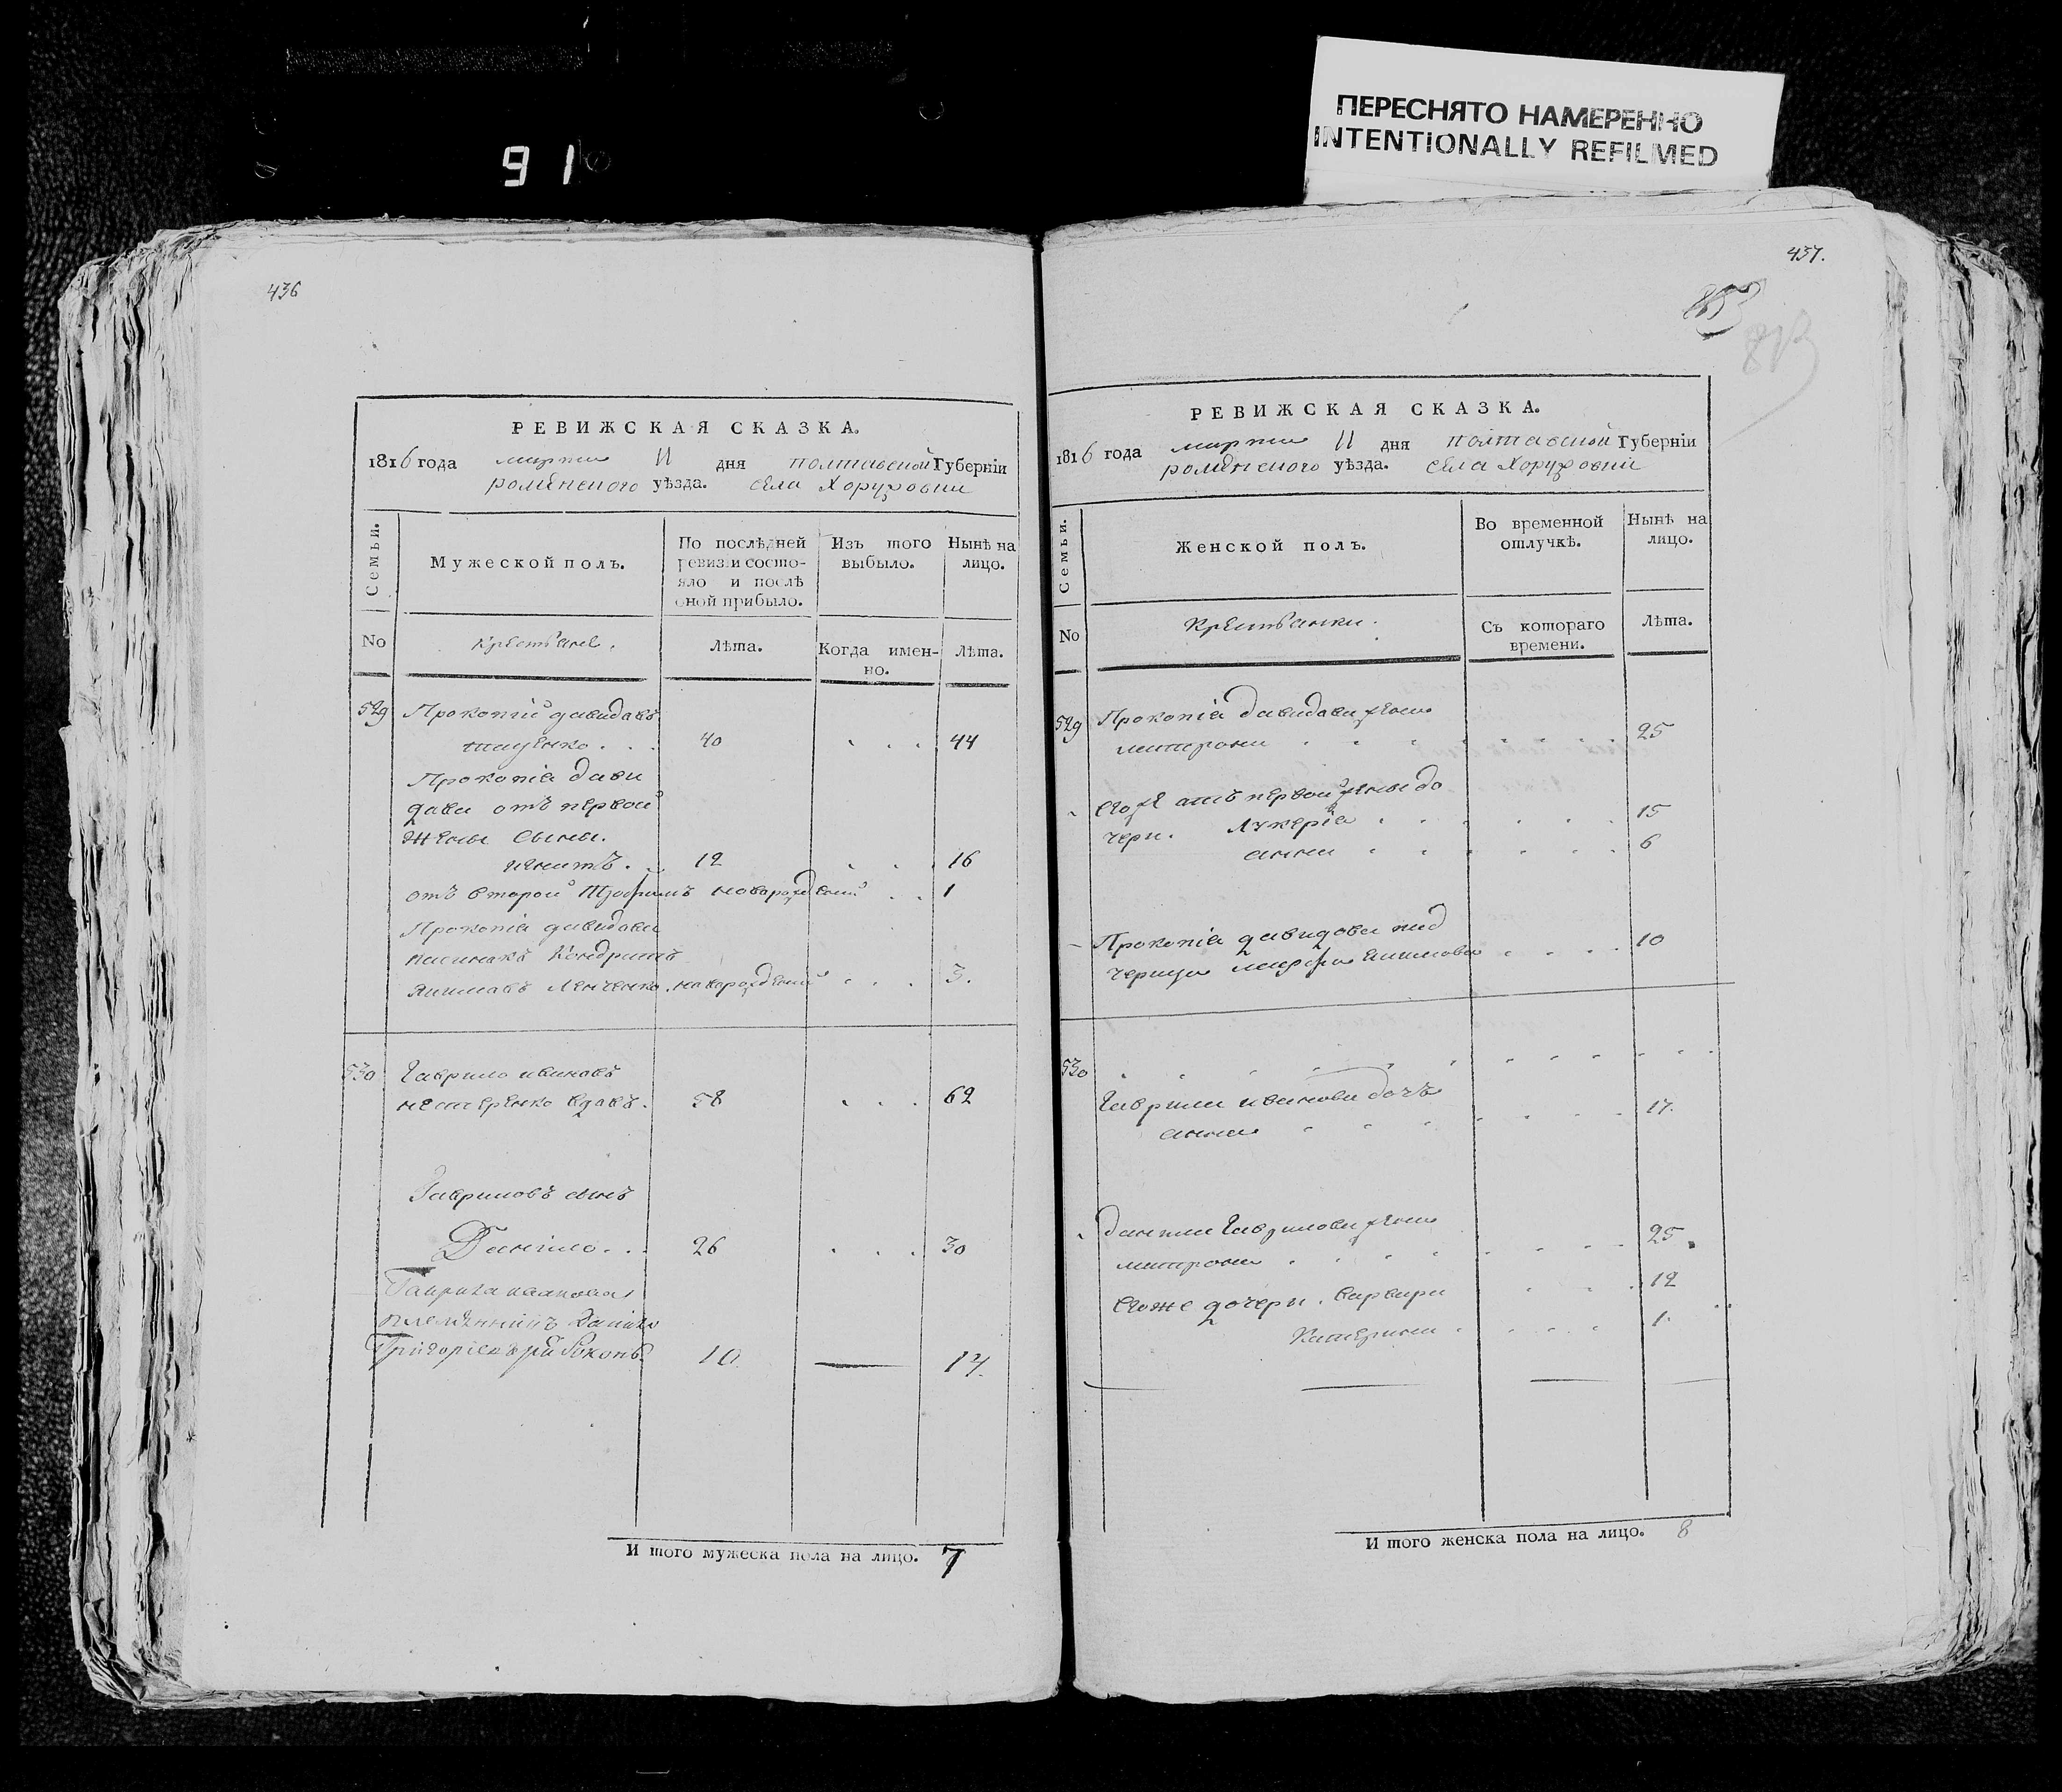 91
ПЕРЕСНЯТО НАМЕРЕННО
INTENTIONALLY REFILMED
436
РЕВИЖСКАЯ СКАЗКА.
1816 года марта 11 дня полтавской Губерніи
роменского уѣзда. села Хоружовки
Семьи.
Мужеской полъ.
По послѣдней ревизіи состояло и послѣ оной прибыло.
Изъ того выбыло.
Нынѣ на лицо.
No
Крестьяне.
Лѣта.
Когда именно.
Лѣта.
529 Прокопій давидовъ
40 . . . 44
Прокопіа дави
дова отъ первой
жены сыны.
игнатъ. 12 . . . 16
отъ второй Трофимъ новорожденный . . 1
Прокопіа давидова
пасинокъ Кондратъ
новорожденный . . . 3.
530 Гаврило ивановъ
нестеренко вдовъ. 58 . . . 62
Гавриловъ сынъ
Даніило. . . 26 . . . 30
Гаврила иванова
племянникъ Данило
10 — 14.
И того мужеска пола на лицо. 7
437.
РЕВИЖСКАЯ СКАЗКА.
1816 года марта 11 дня полтавской Губерніи
роменского уѣзда. села Хоружовки
Семьи.
Женской полъ.
Во временной отлучкѣ.
Нынѣ на лицо.
No
Крестьянки.
Съ котораго времени.
Лѣта.
529 Прокопіа давидова жена
матрона 25
его же отъ первой жены до
чери. Лукеріа 15
анна 6
Прокопіа давидова пад
черица марфа 10
530
Гаврила иванова дочь
анна 17.
данила Гаврилова жена
матрона 25
его же дочери. варвара 12
Катерина 1.
И того женска пола на лицо. 8